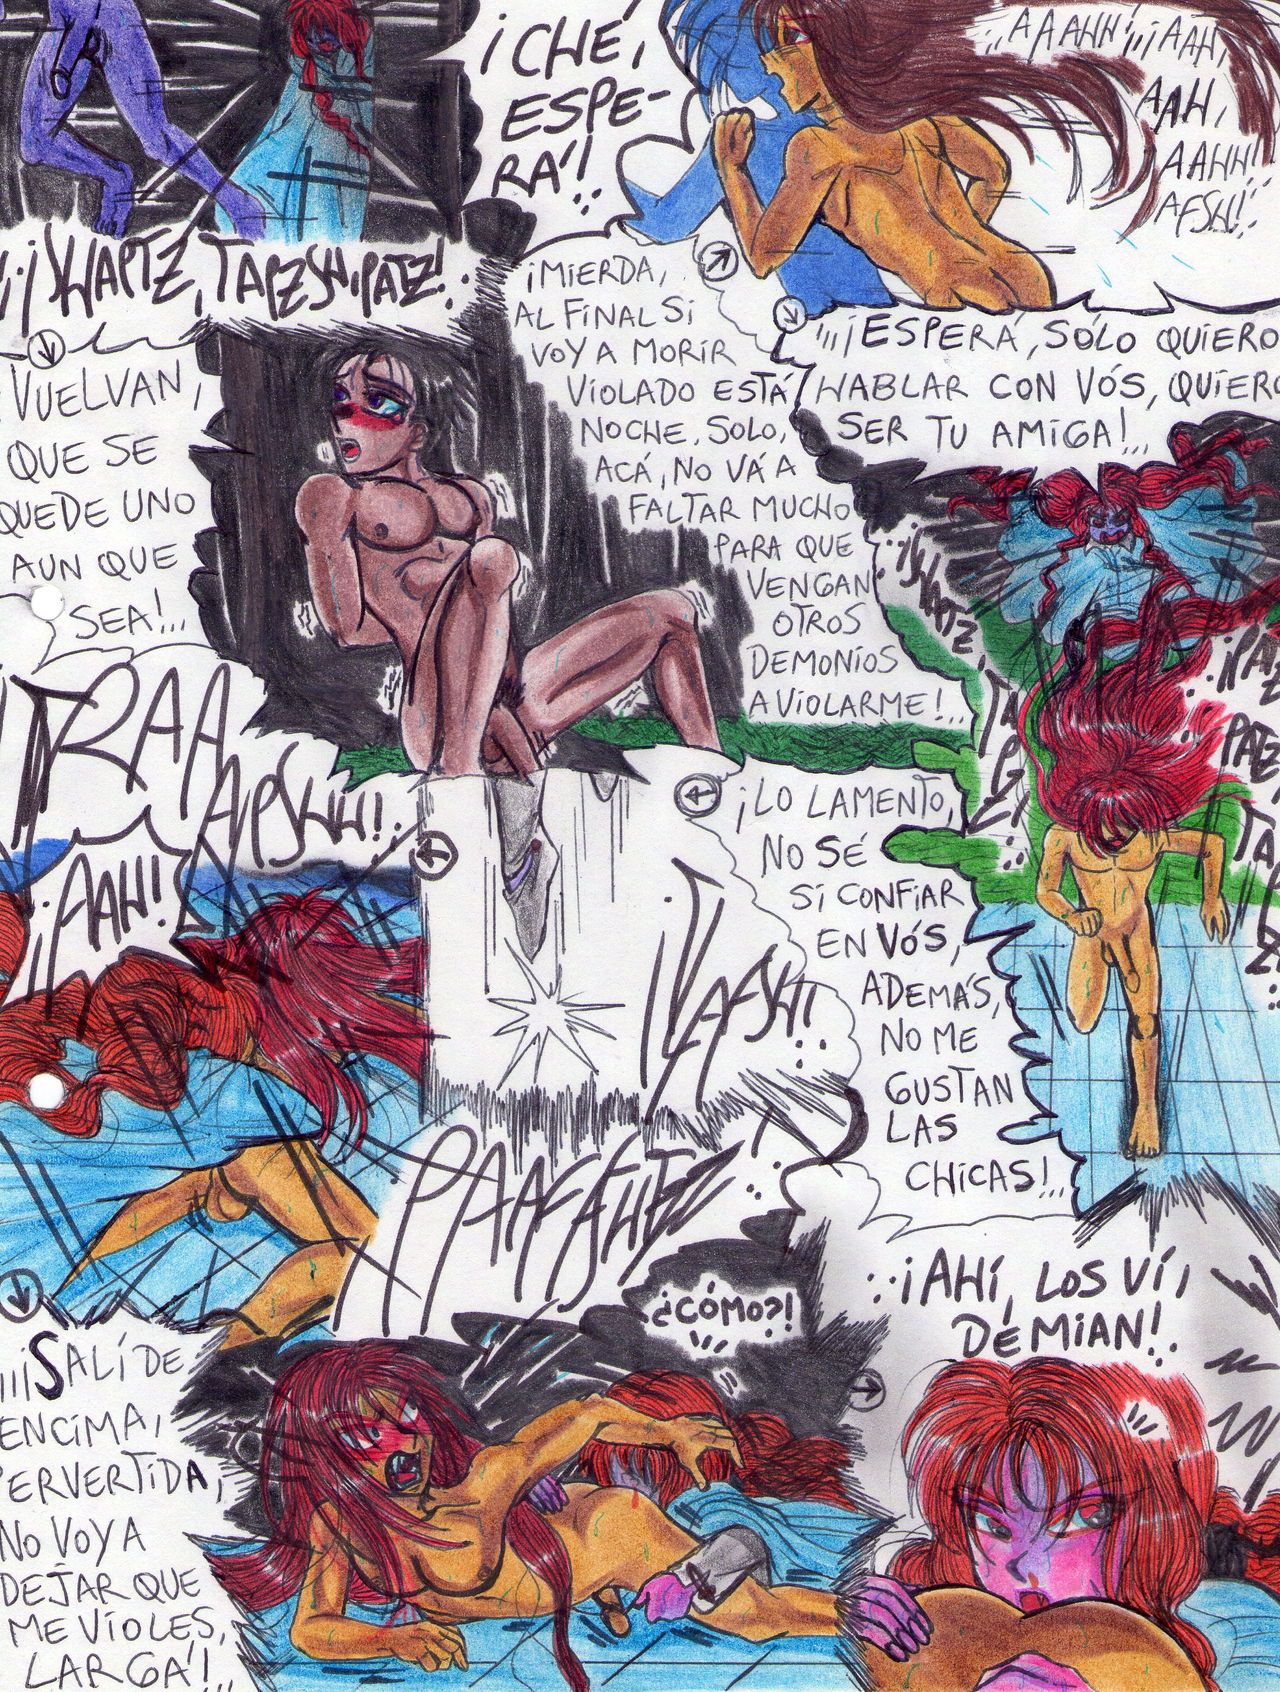 ¡CHÉ,
ESPE-
RÁ!...
¡¡AAAHH!, ¡¡AAH,
AAH,
AAHH!
AFSH!...
¡¡SHAPTZ, TAPZSH, PATZ!...
¡¡¡ESPERÁ, SÓLO QUIERO
HABLAR CON VÓS, QUIERO
SER TU AMIGA!...
¡¡SHAPTZ,
¡LO LAMENTO,
NO SÉ
SI CONFIAR
EN VÓS,
ADEMÁS,
NO ME
GUSTAN
LAS
CHICAS!...
¡MIERDA,
AL FINAL SI
VOY A MORIR
VIOLADO ESTÁ
NOCHE, SOLO,
ACÁ, NO VÁ A
FALTAR MUCHO
PARA QUE
VENGAN
OTROS
DEMONIOS
A VIOLARME!...
VUELVAN,
QUE SE
QUEDE UNO
AUN QUE
SEA!...
¡AAH!
¡ZAFSH!...
¡¡¡SALÍ DE
ENCIMA,
PERVERTIDA,
NO VOY A
DEJAR QUE
ME VIOLES,
LARGÁ!...
¿CÓMO?!
...¡AHÍ, LOS VÍ,
DÉMIAN!..